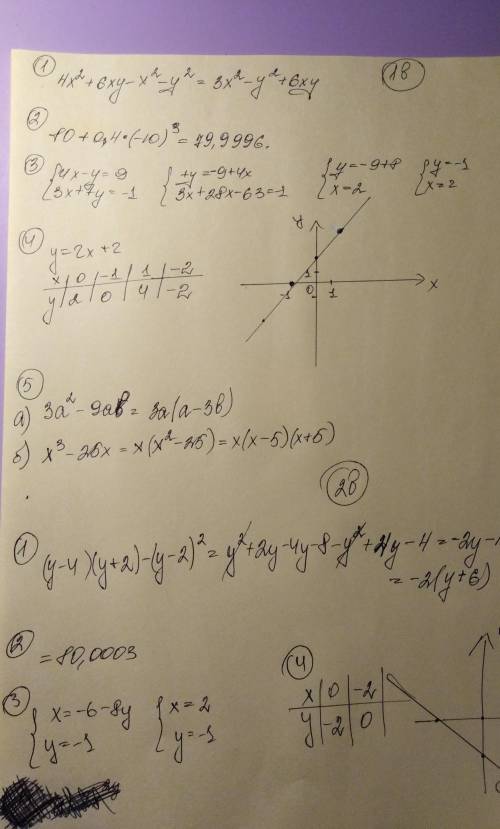 ① 4x² + 6xy - x² - y² = 3x² - y² + 6xy
1В
②
80 + 0,4 · (-10)³ = 79,9996.
③ {4x - y = 9 {+y = -9 + 4x {y = -9 + 8 {y = -1
3x + 7y = -1 3x + 28x - 63 = -1 x = 2 x = 2
④ y = 2x + 2
x | 0 | -1 | 1 | -2
y | 2 | 0 | 4 | -2
y
1
-1 0 1 x
⑤
а) 3a² - 9ab = 3a(a - 3b)
б) x³ - 25x = x(x² - 25) = x(x - 5)(x + 5)
2В
① (y - 4)(y + 2) - (y - 2)² = y² + 2y - 4y - 8 - y² + 4y - 4 = -2y - 1
= -2(y + 6)
② = 80,0003
③ {x = -6 - 8y {x = 2
y = -1 y = -1
④
x | 0 | -2
y | -2 | 0